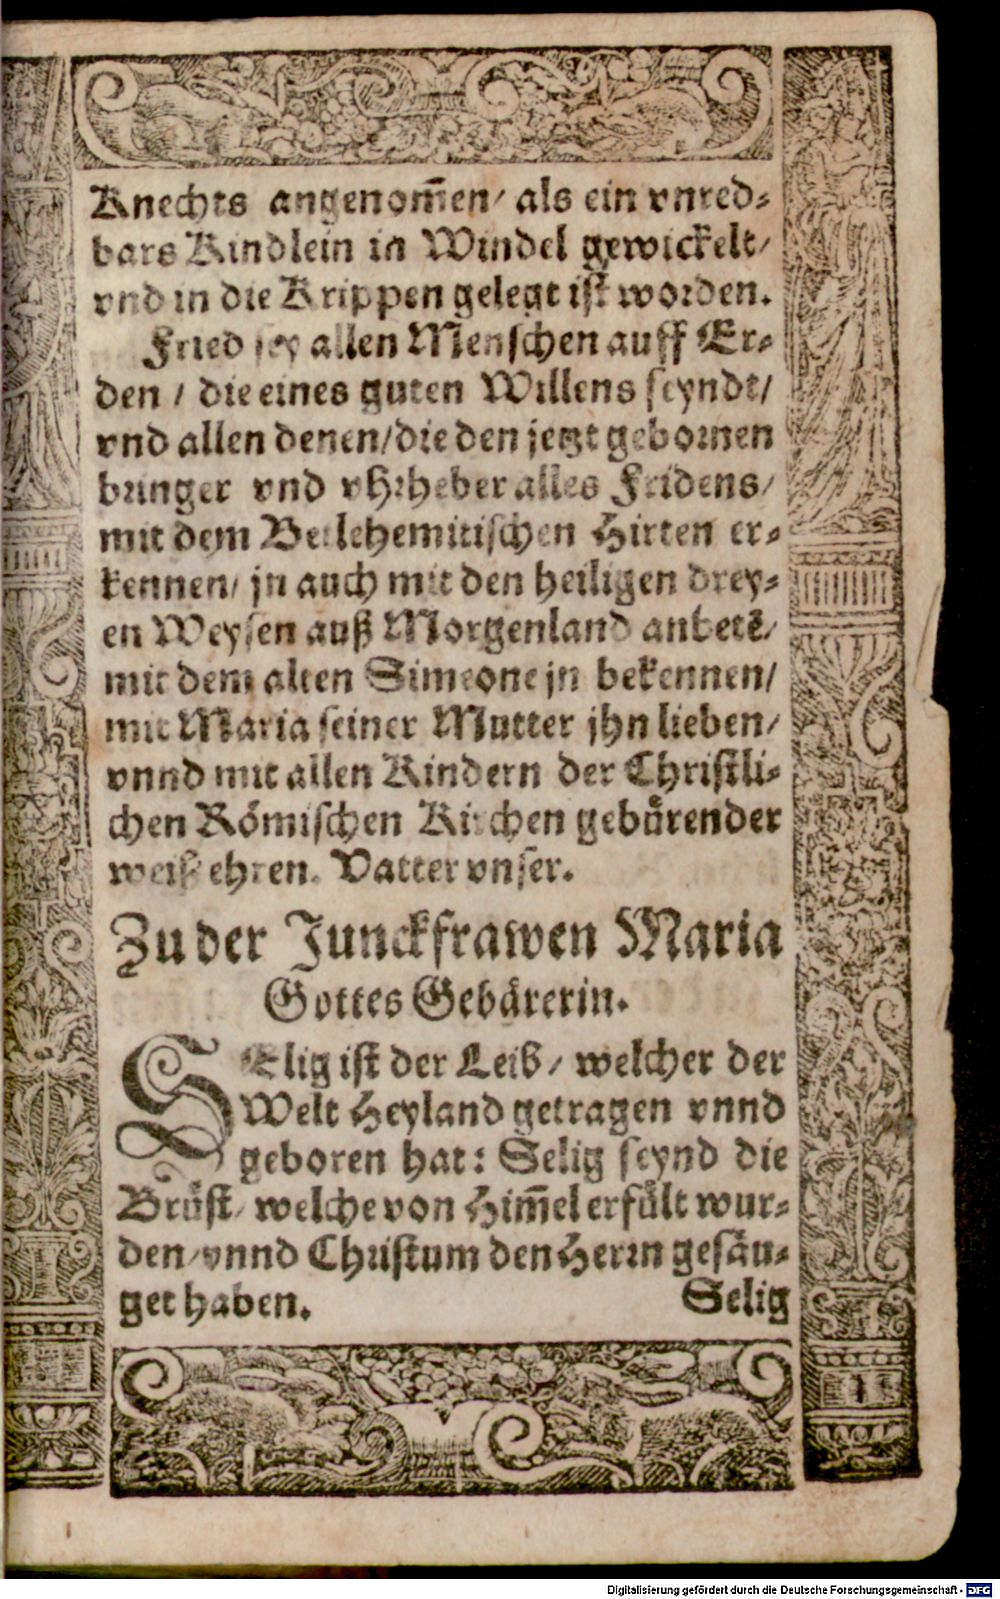 Knechts angenom̄en/ als ein vnred-
bars Kindlein in Windel gewickelt/
vnd in die Krippen gelegt ist worden.
Fried sey allen Menschen auff Er-
den / die eines guten Willens seyndt/
vnd allen denen/die den jetzt gebornen
bringer vnd vhrheber alles Fridens/
mit dem Betlehemitischen Hirten er-
kennen/ jn auch mit den heiligen drey-
en Weysen auß Morgenland anbetē/
mit dem alten Simeone jn bekennen/
mit Maria seiner Mutter jhn lieben/
vnnd mit allen Kindern der Christli-
chen Römischen Kirchen gebürender
weiß ehren. Vatter vnser.
Zu der Junckfrawen Maria
Gottes Gebärerin.
SElig ist der Leib/ welcher der
Welt Heyland getragen vnnd
geboren hat: Selig seynd die
Brüst/ welche von Him̄el erfült wur-
den/vnnd Christum den Herrn gesäu-
get haben. Selig
Digitalisierung gefördert durch die Deutsche Forschungsgemeinschaft - DFG